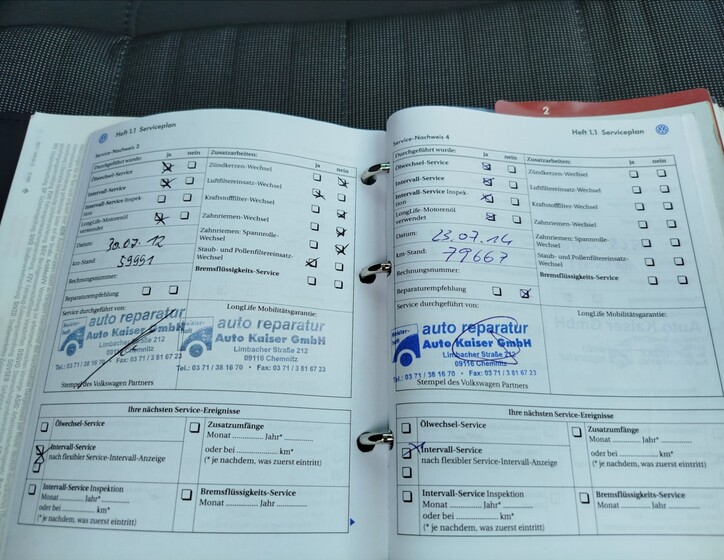 Heft 1.1 Serviceplan
Service-Nachweis 3
Durchgeführt wurde: ja nein
Ölwechsel-Service
Intervall-Service
Intervall-Service Inspek-
tion
LongLife-Motorenöl
verwendet
Datum: 30.07.12
km-Stand: 59951
Rechnungsnummer:
Reparaturempfehlung
Zusatzarbeiten: ja nein
Zündkerzen-Wechsel
Luftfiltereinsatz-Wechsel
Kraftstofffilter-Wechsel
Zahnriemen-Wechsel
Zahnriemen: Spannrolle-
Wechsel
Staub- und Pollenfiltereinsatz-
Wechsel
Bremsflüssigkeits-Service
Service durchgeführt von:
LongLife Mobilitätsgarantie:
auto reparatur
Auto Kaiser GmbH
Limbacher Straße 212
09116 Chemnitz
Tel.: 03 71 / 38 16 70 • Fax: 03 71 / 3 81 67 23
auto reparatur
Auto Kaiser GmbH
Limbacher Straße 212
09116 Chemnitz
Tel.: 03 71 / 38 16 70 • Fax: 03 71 / 3 81 67 23
Stempel des Volkswagen Partners
Ihre nächsten Service-Ereignisse
Ölwechsel-Service
Intervall-Service
nach flexibler Service-Intervall-Anzeige
Intervall-Service Inspektion
Monat ............ Jahr* ............
oder bei ............ km*
(* je nachdem, was zuerst eintritt)
Zusatzumfänge
Monat ............ Jahr* ............
oder bei ............ km*
(* je nachdem, was zuerst eintritt)
Bremsflüssigkeits-Service
Monat ............ Jahr ............
2
Heft 1.1 Serviceplan
Service-Nachweis 4
Durchgeführt wurde: ja nein
Ölwechsel-Service
Intervall-Service
Intervall-Service Inspek-
tion
LongLife-Motorenöl
verwendet
Datum: 23.07.14
km-Stand: 79667
Rechnungsnummer:
Reparaturempfehlung
Zusatzarbeiten: ja nein
Zündkerzen-Wechsel
Luftfiltereinsatz-Wechsel
Kraftstofffilter-Wechsel
Zahnriemen-Wechsel
Zahnriemen: Spannrolle-
Wechsel
Staub- und Pollenfiltereinsatz-
Wechsel
Bremsflüssigkeits-Service
Service durchgeführt von:
LongLife Mobilitätsgarantie:
auto reparatur
Auto Kaiser GmbH
Limbacher Straße 212
09116 Chemnitz
Tel.: 03 71 / 38 16 70 • Fax: 03 71 / 3 81 67 23
Stempel des Volkswagen Partners
Ihre nächsten Service-Ereignisse
Ölwechsel-Service
Intervall-Service
nach flexibler Service-Intervall-Anzeige
Intervall-Service Inspektion
Monat ............ Jahr* ............
oder bei ............ km*
(* je nachdem, was zuerst eintritt)
Zusatzumfänge
Monat ............ Jahr* ............
oder bei ............ km*
(* je nachdem, was zuerst eintritt)
Bremsflüssigkeits-Service
Monat ............ Jahr ............